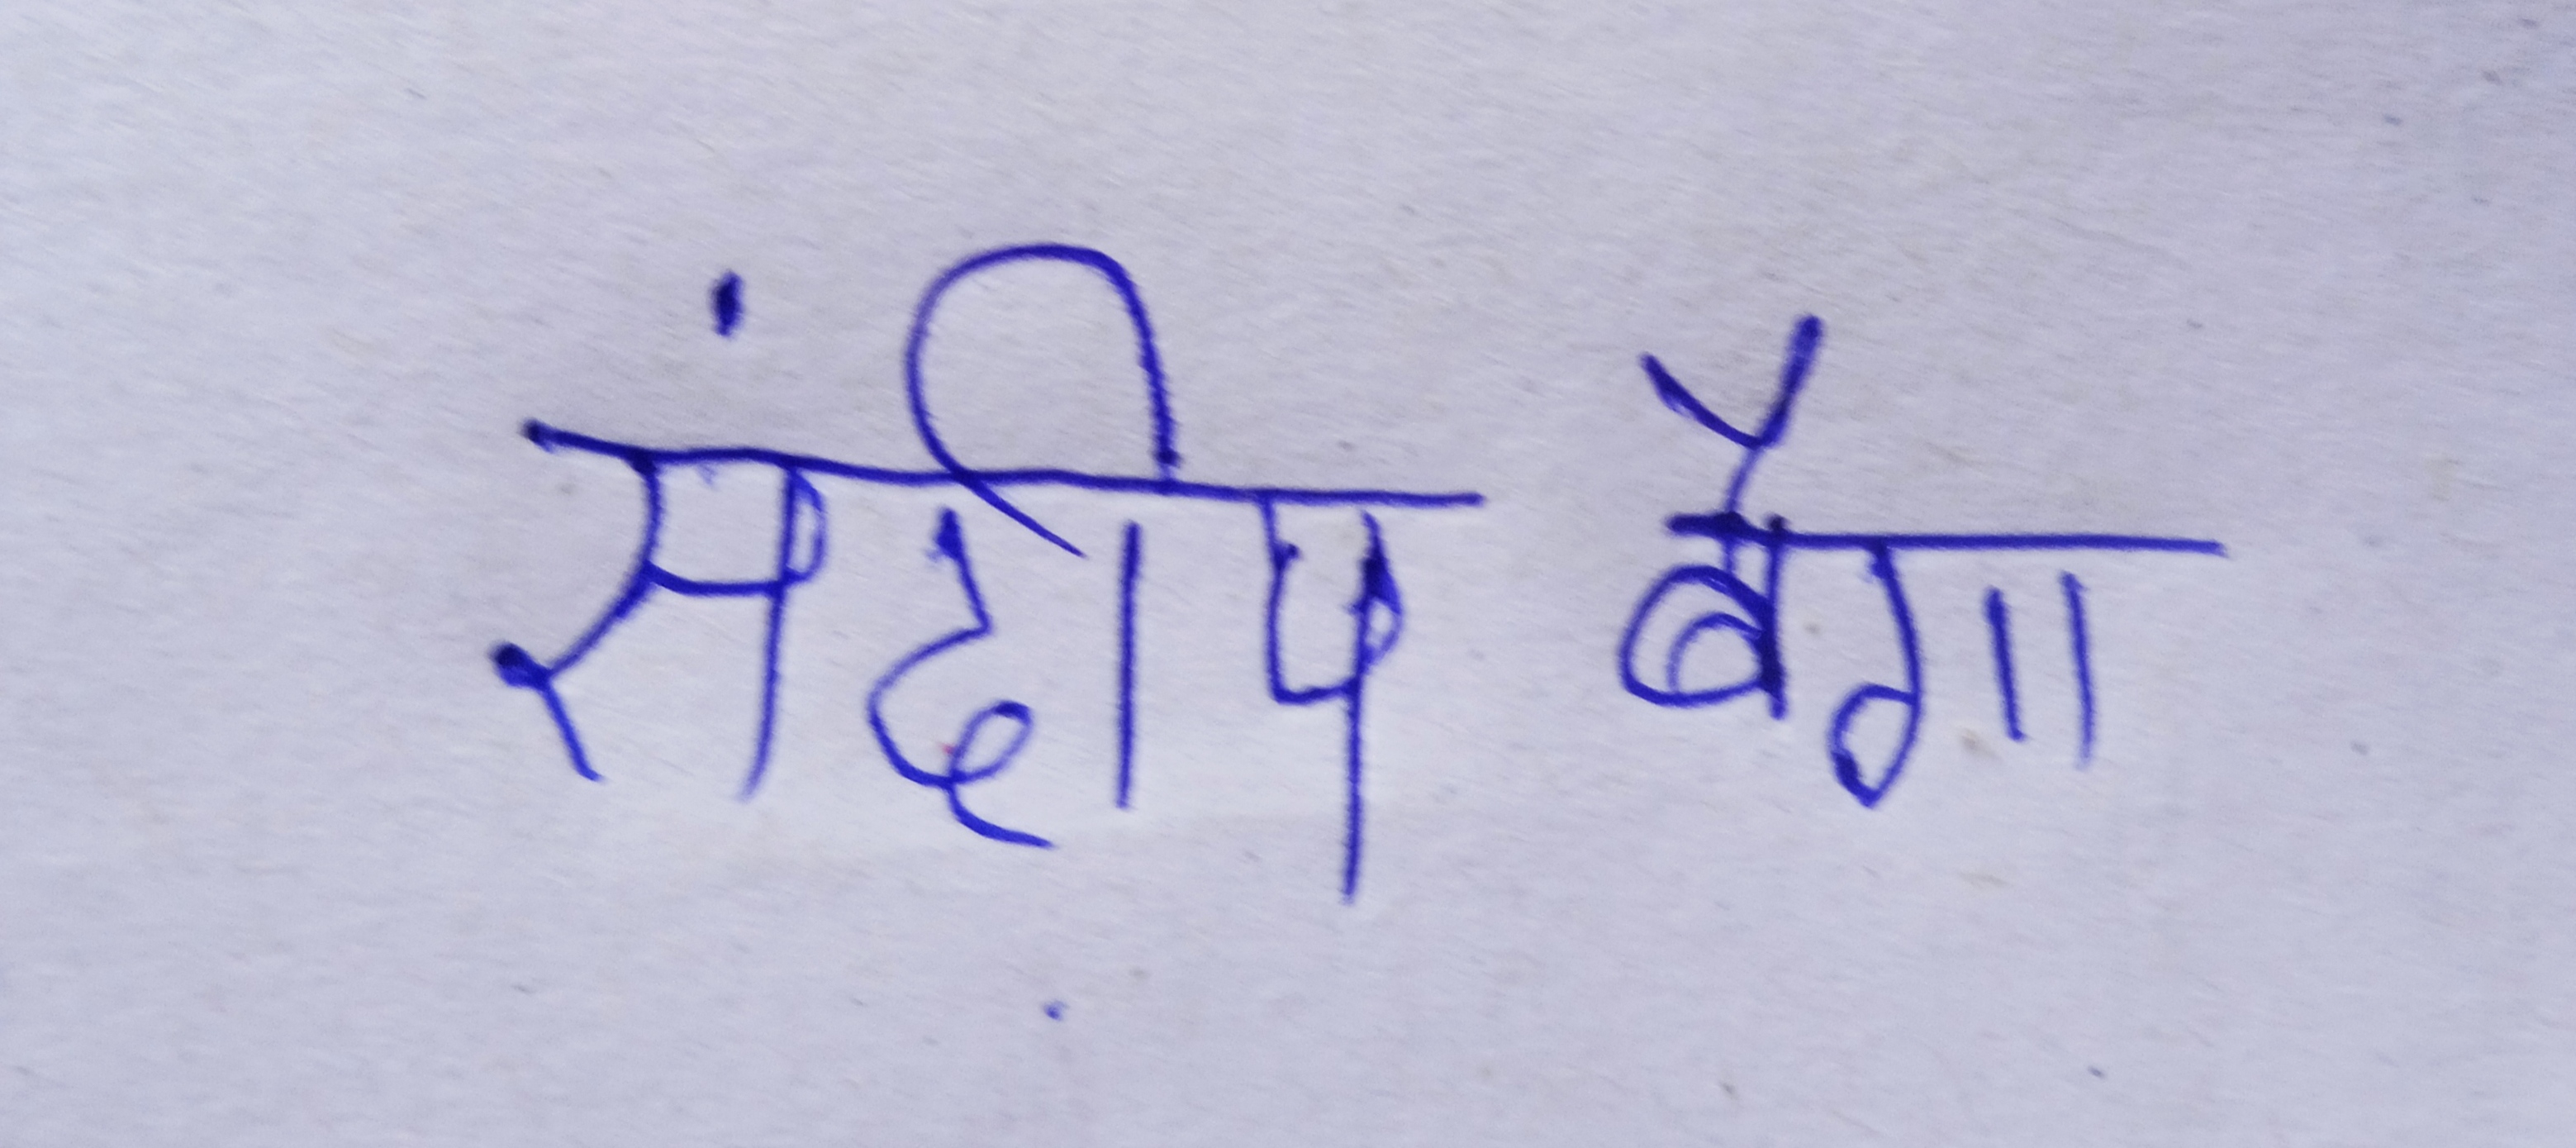 संदीप बैगा